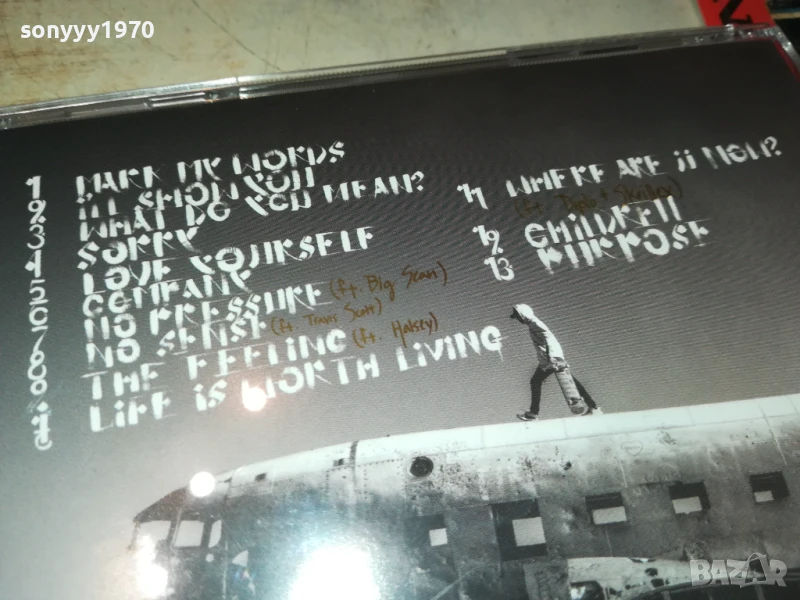 sonyyy1970
1 MARK MY WORDS
2 I'LL SHOW YOU
3 WHAT DO YOU MEAN?
4 SORRY
5 LOVE YOURSELF
6 COMPANY
7 NO PRESSURE (ft. Big Sean)
8 NO SENSE (ft. Travis Scott)
9 THE FEELING (ft. Halsey)
LIFE IS WORTH LIVING
11 WHERE ARE Ü NOW?
(ft. Diplo + Skrillex)
12 CHILDREN
13 PURPOSE
BAZAR